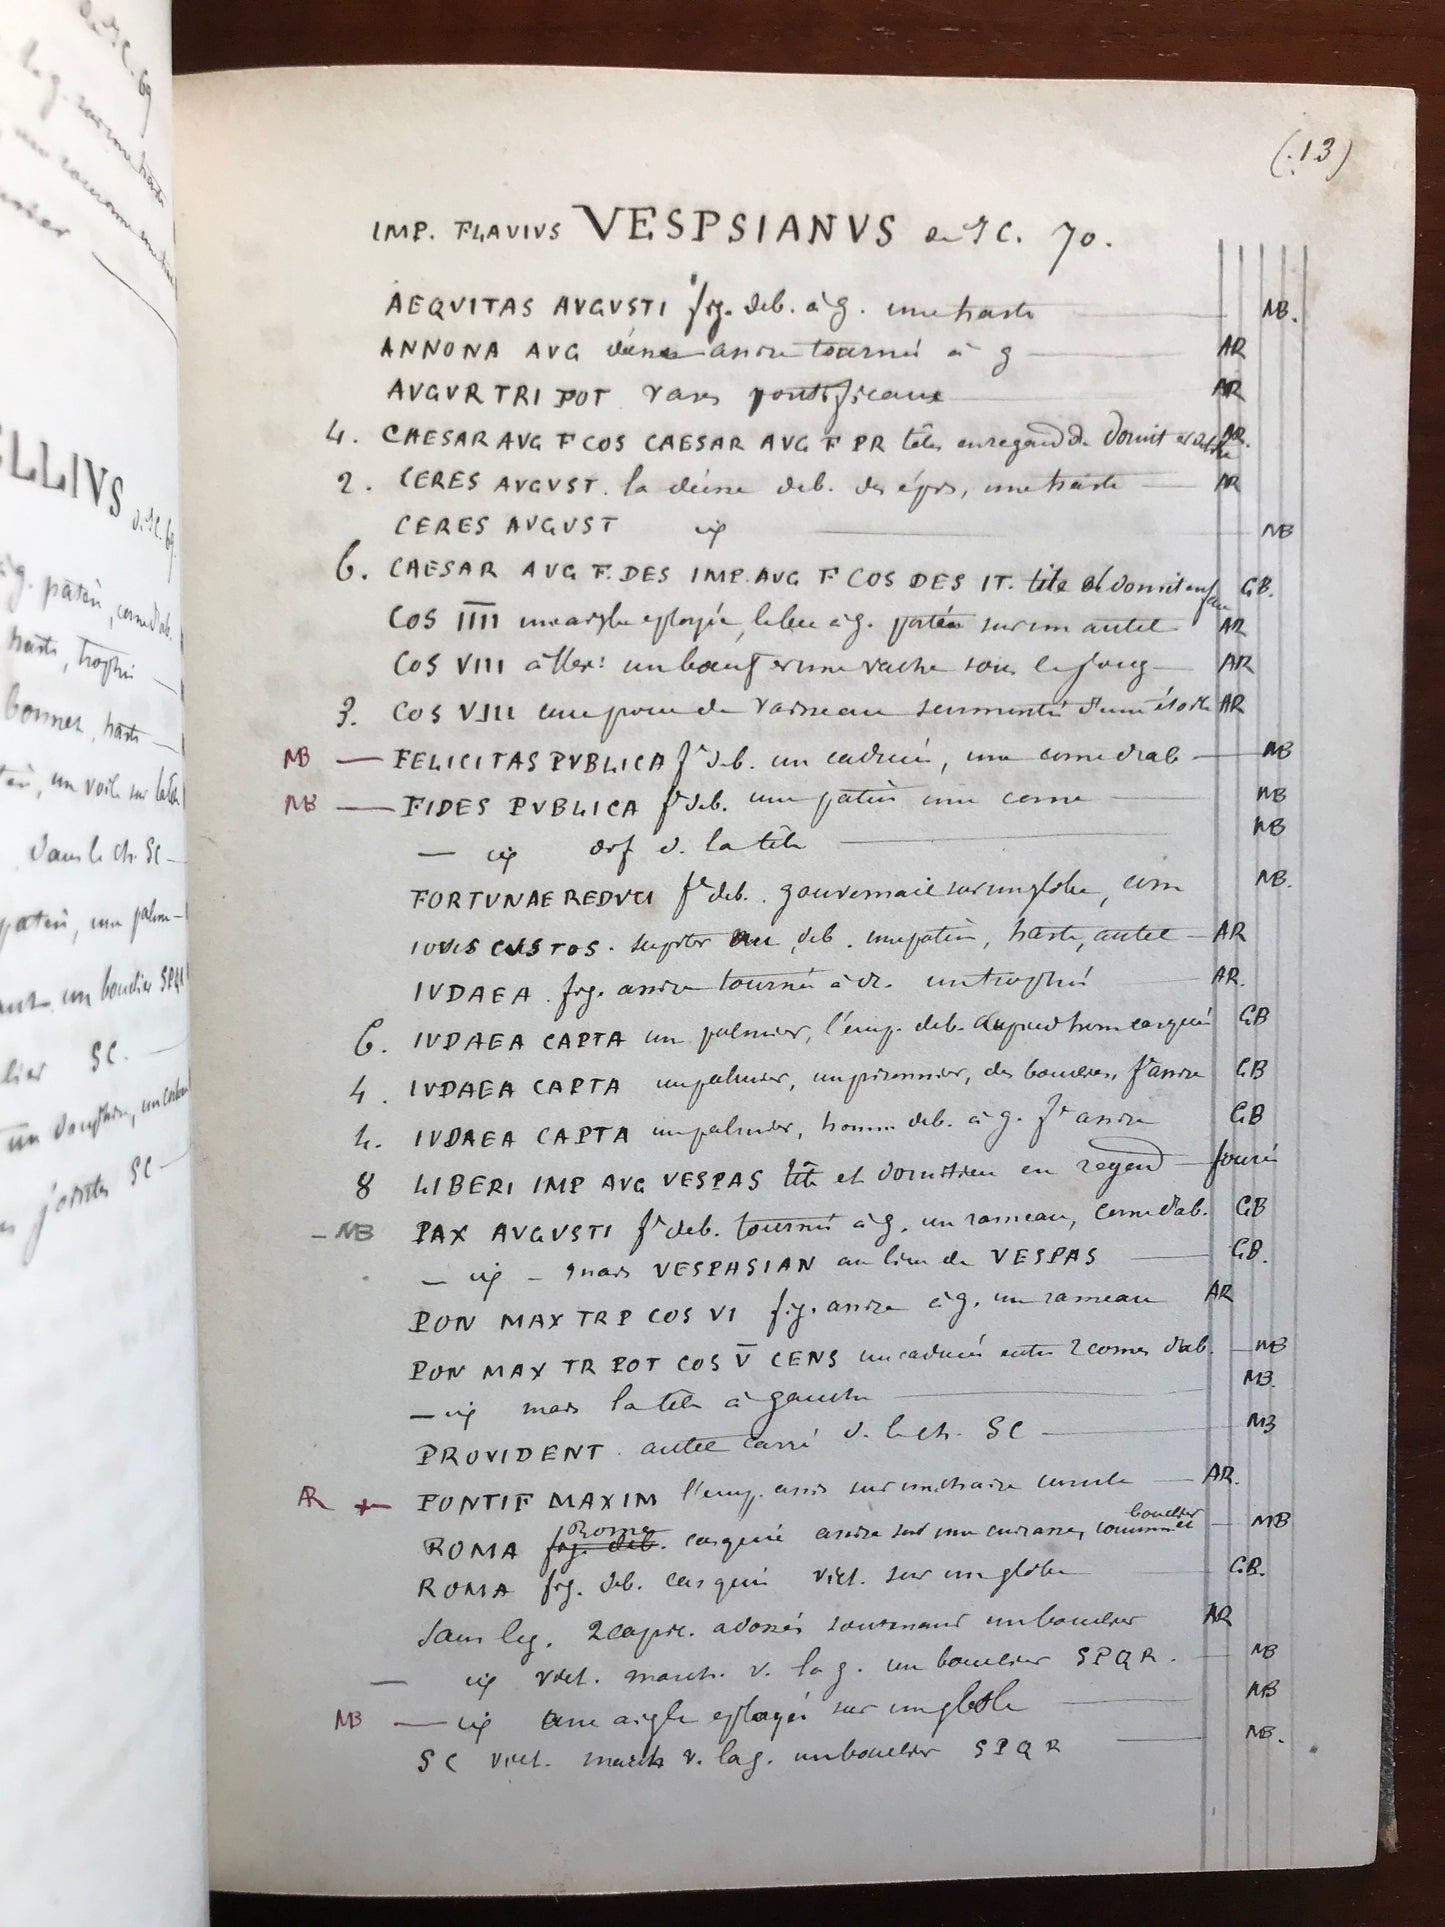 de JC. 69
ELLIVS de JC. 69
à g. patère, corne d'ab.
haste, trophée
bonnet, haste
un voile sur la tête
dans le ch. SC
patère, une palme
un bouclier SPQR
SC.
un dauphin, un corbeau
jointes SC
(13)
IMP. FLAVIVS VESPSIANVS de JC. 70.
AEQVITAS AVGVSTI fig. deb. à g. une haste MB.
ANNONA AVG déesse assise tournée à g AR
AVGVR TRI POT vases pontificaux AR
4. CAESAR AVG F COS CAESAR AVG F PR têtes en regard de Domit et AR.
2. CERES AVGVST. la déesse deb. des épis, une haste AR
CERES AVGVST id MB
6. CAESAR AVG F. DES IMP. AVG F COS DES IT. tête de domit en face GB.
COS IIII un aigle eployée, la tête à g. patère sur un autel AR
COS VIII à l'ex: un bœuf et une vache sous le joug AR
3. COS VIII une proue de vaisseau surmonté d'une étoile AR
MB — FELICITAS PVBLICA f^e deb. un caducée, une corne d'ab MB
MB — FIDES PVBLICA f^e deb. une patère une corne MB
— id diff d. la tête MB
FORTVNAE REDVCI f^e deb. gouvernail sur un globe, corn MB.
IOVIS CVSTOS. Jupiter nu, deb. une patère, haste, autel AR
IVDAEA. fig. assise tournée à dr. un trophée AR.
6. IVDAEA CAPTA un palmier, l'emp. deb. casqué GB
4. IVDAEA CAPTA un palmier, un prisonnier, des boucliers, f^e assise GB
4. IVDAEA CAPTA un palmier, homme deb. à g. f^e assise GB
8 LIBERI IMP AVG VESPAS tête et domitien en regard fourré
— MB PAX AVGVSTI f^e deb. tournée à g. un rameau, corne d'ab. GB
— id — mais VESPASIAN au lieu de VESPAS GB.
PON MAX TR P COS VI fig. assise à g. un rameau AR
PON MAX TR POT COS V CENS un caducée entre 2 cornes d'ab. MB
— id mais la tête à gauche MB.
PROVIDENT. autel carré d. le ch. SC MB
AR + PONTIF MAXIM l'emp. assis sur une chaise curule AR.
ROMA fig. deb. Rome casquée assise sur une cuirasse, couronne et bouclier MB
ROMA fig. deb. casquée vict. sur un globe GB.
Sans leg. 2 capric. adossés soutenant un bouclier AR
— id vict. march. v. la g. un bouclier SPQR. MB
MB — id Une aigle eployée sur un globe MB
SC vict. march v. la g. un bouclier SPQR MB.